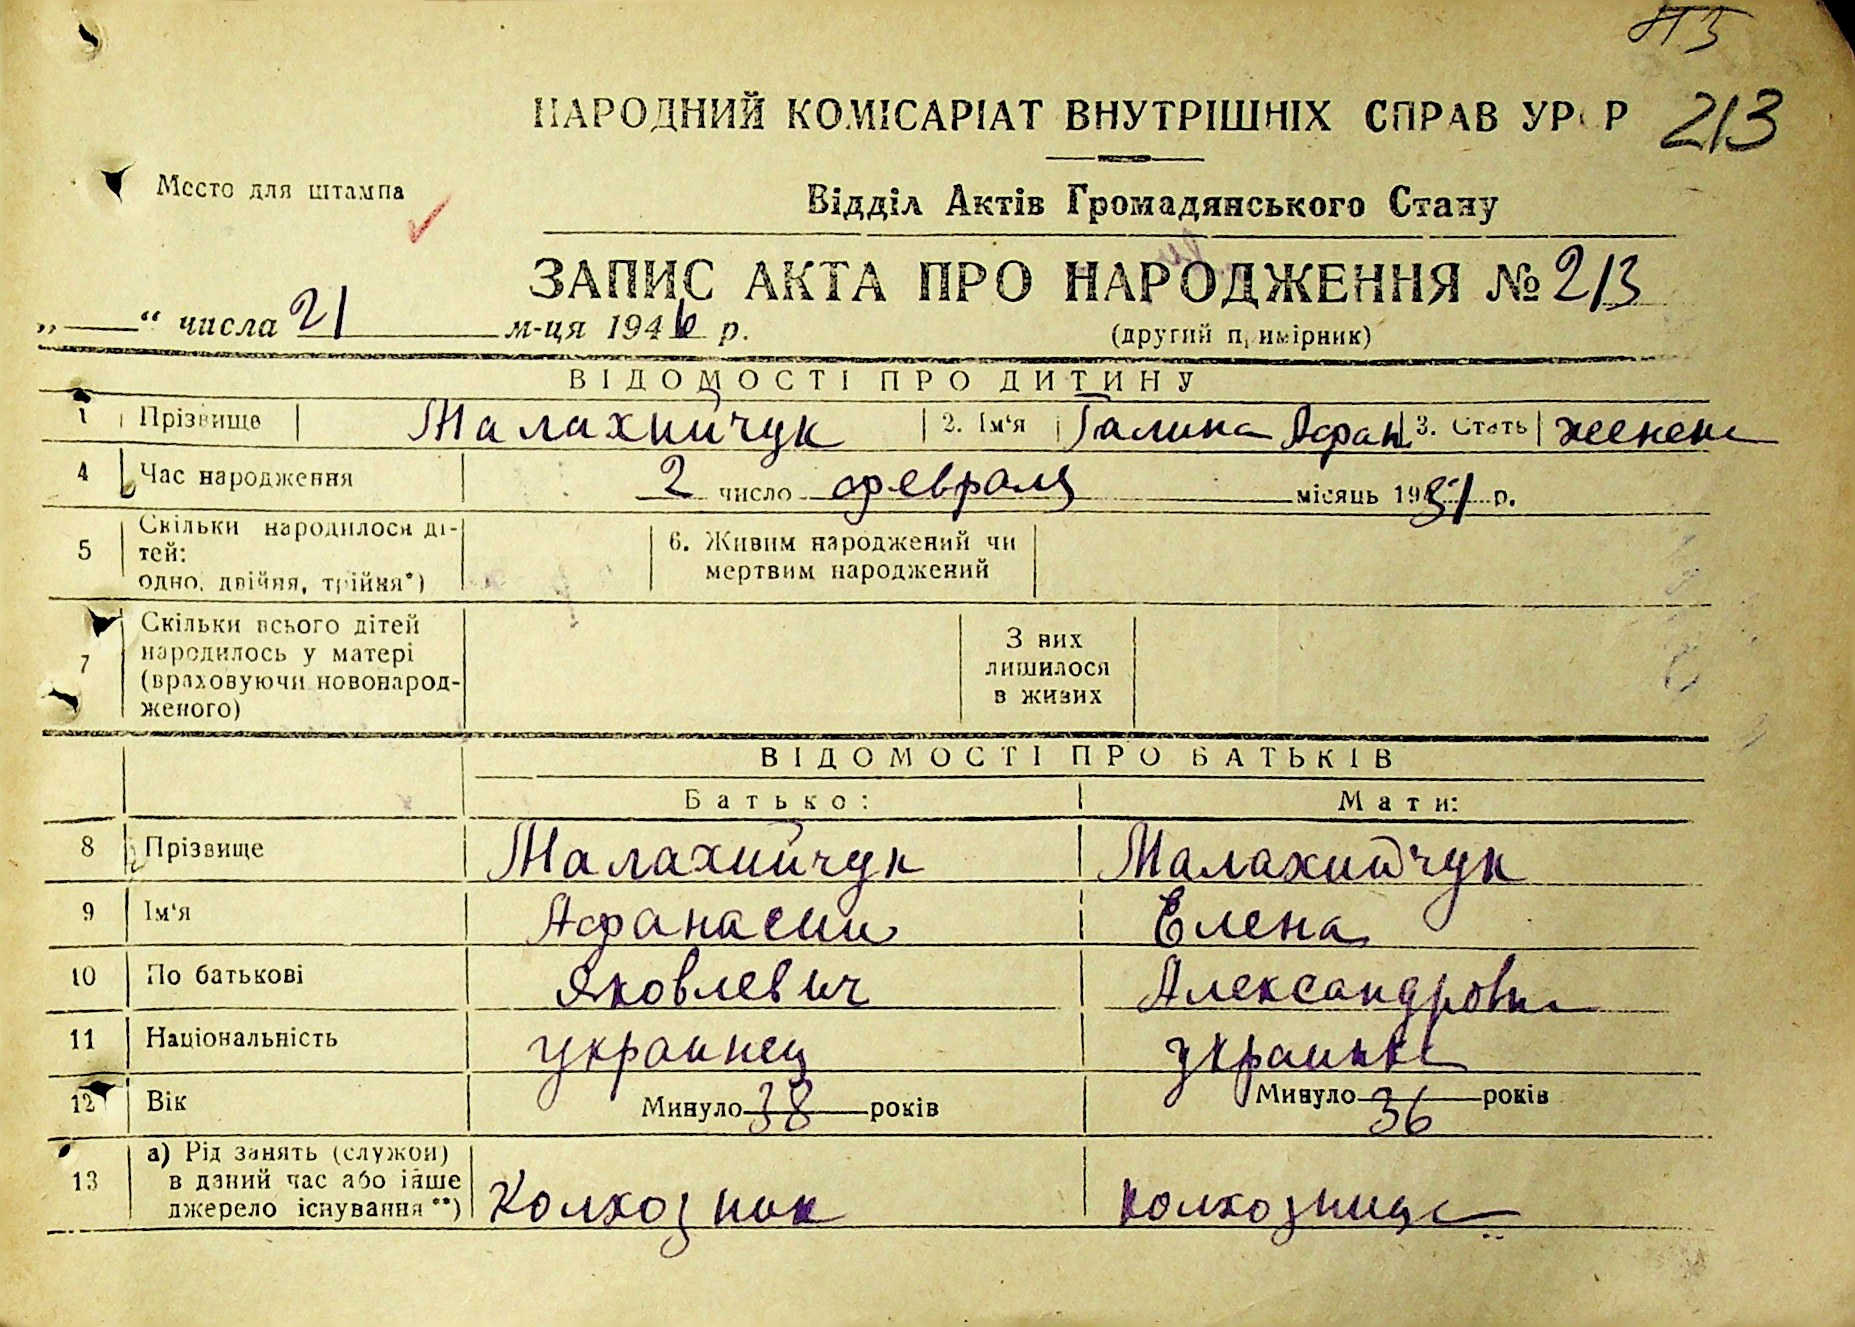 213
НАРОДНИЙ КОМІСАРІАТ ВНУТРІШНІХ СПРАВ УРСР 213
Место для штампа
Відділ Актів Громадянського Стану
ЗАПИС АКТА ПРО НАРОДЖЕННЯ № 213
„ “ числа 21 м-ця 1946 р.
(другий примірник)
ВІДОМОСТІ ПРО ДИТИНУ
1 Прізвище Малахийчук 2. Ім‘я Галина Афан 3. Стать женск
4 Час народження 2 число февраля місяць 1931 р.
5 Скільки народилося ді-
тей:
одно, двійня, трійня*)
6. Живим народжений чи
мертвим народжений
7 Скільки всього дітей
народилось у матері
(враховуючи новонарод-
женого)
З них
лишилося
в живих
ВІДОМОСТІ ПРО БАТЬКІВ
Батько: Мати:
8 Прізвище Малахийчук Малахийчук
9 Ім‘я Афанасии Елена
10 По батькові Яковлевич Александровна
11 Національність украинец украинка
12 Вік Минуло 38 років Минуло 36 років
13 а) Рід занять (служби)
в даний час або інше
джерело існування**) Колхозник колхозница